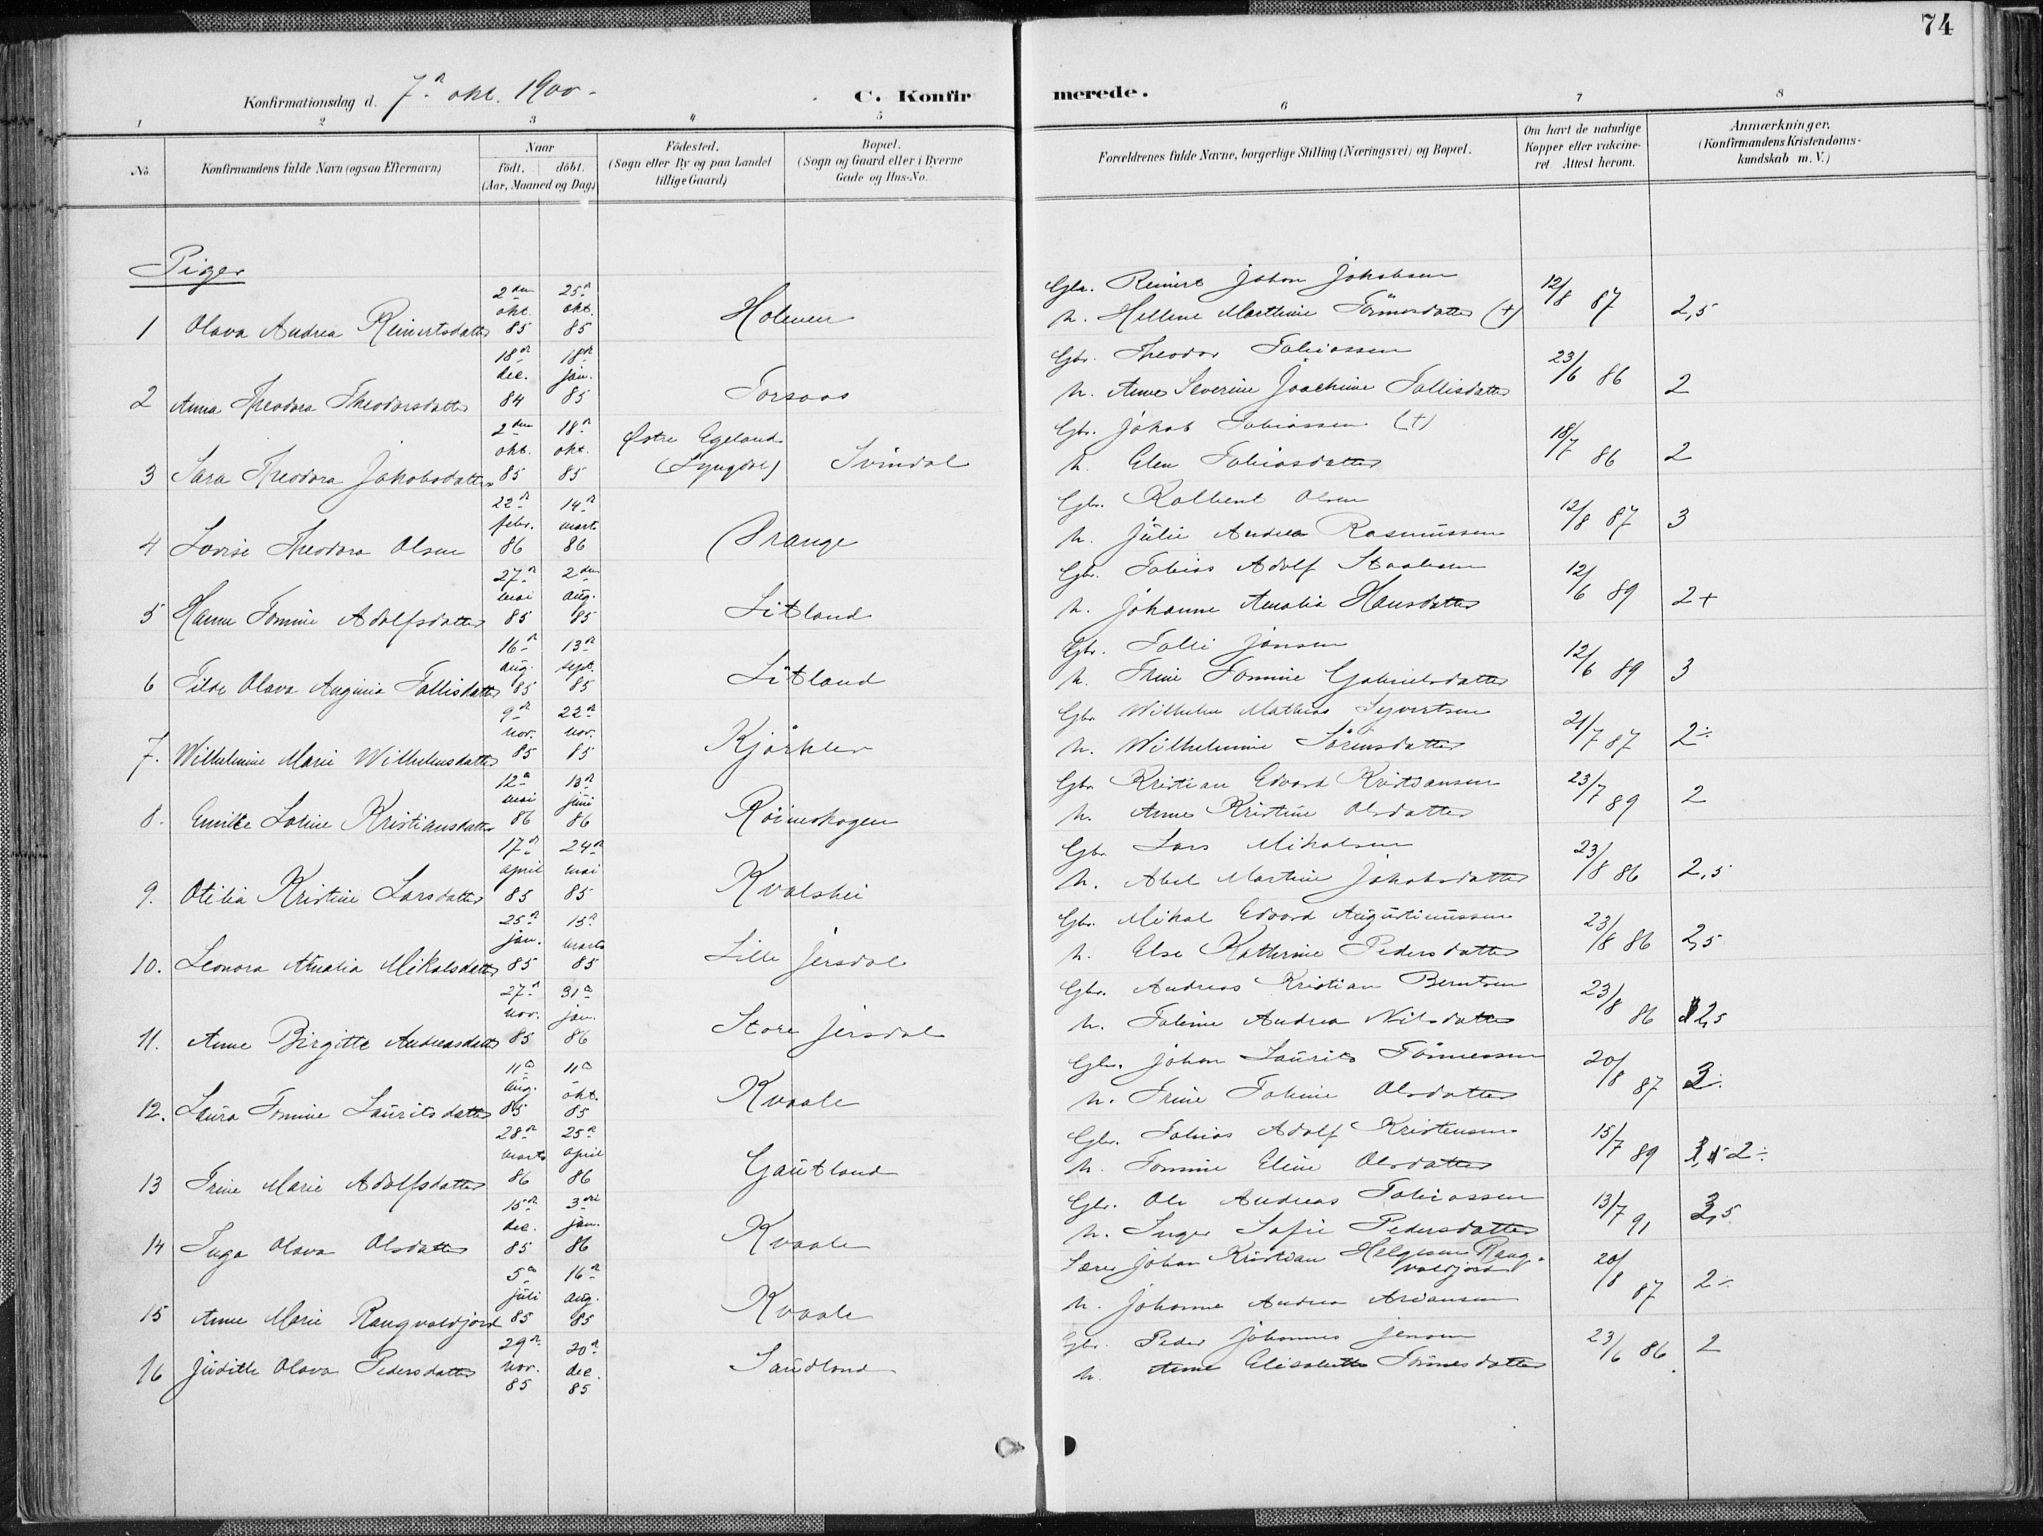 74
Konfirmationsdag d. 7de okt. 1900.
C. Konfirmerede.
1 2 3 4 5 6 7 8
No.
Konfirmandens fulde Navn (ogsaa Efternavn)
Naar
født. døbt.
(Aar, Maaned og Dag)
Fødested.
(Sogn eller By og paa Landet
tillige Gaard)
Bopæl.
(Sogn og Gaard eller i Byerne
Gade og Hus-No.
Forældrenes fulde Navne, borgerlige Stilling (Næringsvei) og Bopæl.
Om havt de naturlige
Kopper eller vaccineret. Attest herom.
Anmærkninger.
(Konfirmandens Kristendomskundskab m. V.)
Piger
1 Olava Andrea Reinertsdatter 2den okt. 85 25de okt. 85 Holmen Gbr. Reinert Johan Jakobsen h. Hellene Marthine Tönnesdatter (+) 12/8 87 2,5
2 Anna Theodora Theodorsdatter 18de dec. 84 18de jan. 85 Torsaas Gbr. Theodor Tobiassen h. Anne Severine Joachime Tollisdatter 23/6 86 2
3 Sara Theodora Jakobsdatter 2den okt. 85 18de okt. 85 Østre Egeland (Lyngdal) Svindal Gbr. Jakob Tobiassen (+) h. Elen Tobiasdatter 18/7 86 2
4 Lovise Theodora Olsen 22de febr. 86 14de marts 86 Drange Gbr. Kolbent Olsen h. Julie Andrea Rasmussen 12/8 87 3
5 Hanne Tomine Adolfsdatter 27de mai 85 2den aug. 85 Litland Gbr. Tobias Adolf Staalesen h. Johanne Amalia Hansdatter 12/6 89 2+
6 Tilde Olava Anginia Tollisdatter 16de aug. 85 13de sept. 85 Litland Gbr. Tolli Jansen h. Trine Tomine Gabrielsdatter 12/6 89 3
7. Wilhelmine Marie Wilhelmsdatter 9de nov. 85 22de nov. 85 Kjörklev Gbr. Wilhelm Mathias Syvertsen h. Wilhelmine Sörensdatter 21/7 87 2÷
8. Emilie Lovine Kristiansdatter 12te mai 86 13de juni 86 Röineskogen Gbr. Kristian Edvard Kristiansen h. Anne Kristine Olsdatter 23/7 89 2
9. Otilia Kristine Larsdatter 17de april 85 24de mai 85 Kvalshei Gbr. Lars Mikalsen h. Abel Martine Jakobsdatter 23/8 86 2,5
10. Leonora Amalia Mikalsdatter 25de jan. 85 15de marts 85 Lille Jersdal Gbr. Mikal Edvard Augustinussen h. Else Kathrine Pedersdatter 23/8 86 2,5
11. Anne Birgitte Andreasdatter 27de nov. 85 31te jan. 86 Store Jersdal Gbr. Andreas Kristian Berntsen h. Tobine Andrea Nilsdatter 23/8 86 2,5
12. Laura Tomine Lauritsdatter 11te aug. 85 11te okt. 85 Kvaale Gbr. Johan Laurits Tönnessen h. Trine Tobine Olsdatter 20/8 87 3÷
13 Trine Marie Adolfsdatter 28de marts 86 25de april 86 Gautland Gbr. Tobias Adolf Kristensen h. Tomine Eline Olsdatter 15/7 89 2÷
14 Inga Olava Olsdatter 15de dec. 85 3die jan. 86 Kvaale Gbr. Ole Andreas Tobiassen h. Inger Sofie Pedersdatter 13/7 91 3,5
15 Anne Marie Rangvaldjord 5te juli 85 16de aug. 85 Kvaale Lærer Johan Kristian Helgesen Rangvaldjord h. Johanne Andrea Ariansen 20/8 87 2÷
16 Judithe Olava Pedersdatter 29de nov. 85 20de dec. 85 Sandland Gbr. Peder Johannes Jensen h. Anne Elisabeth Tönnesdatter 23/6 86. 2